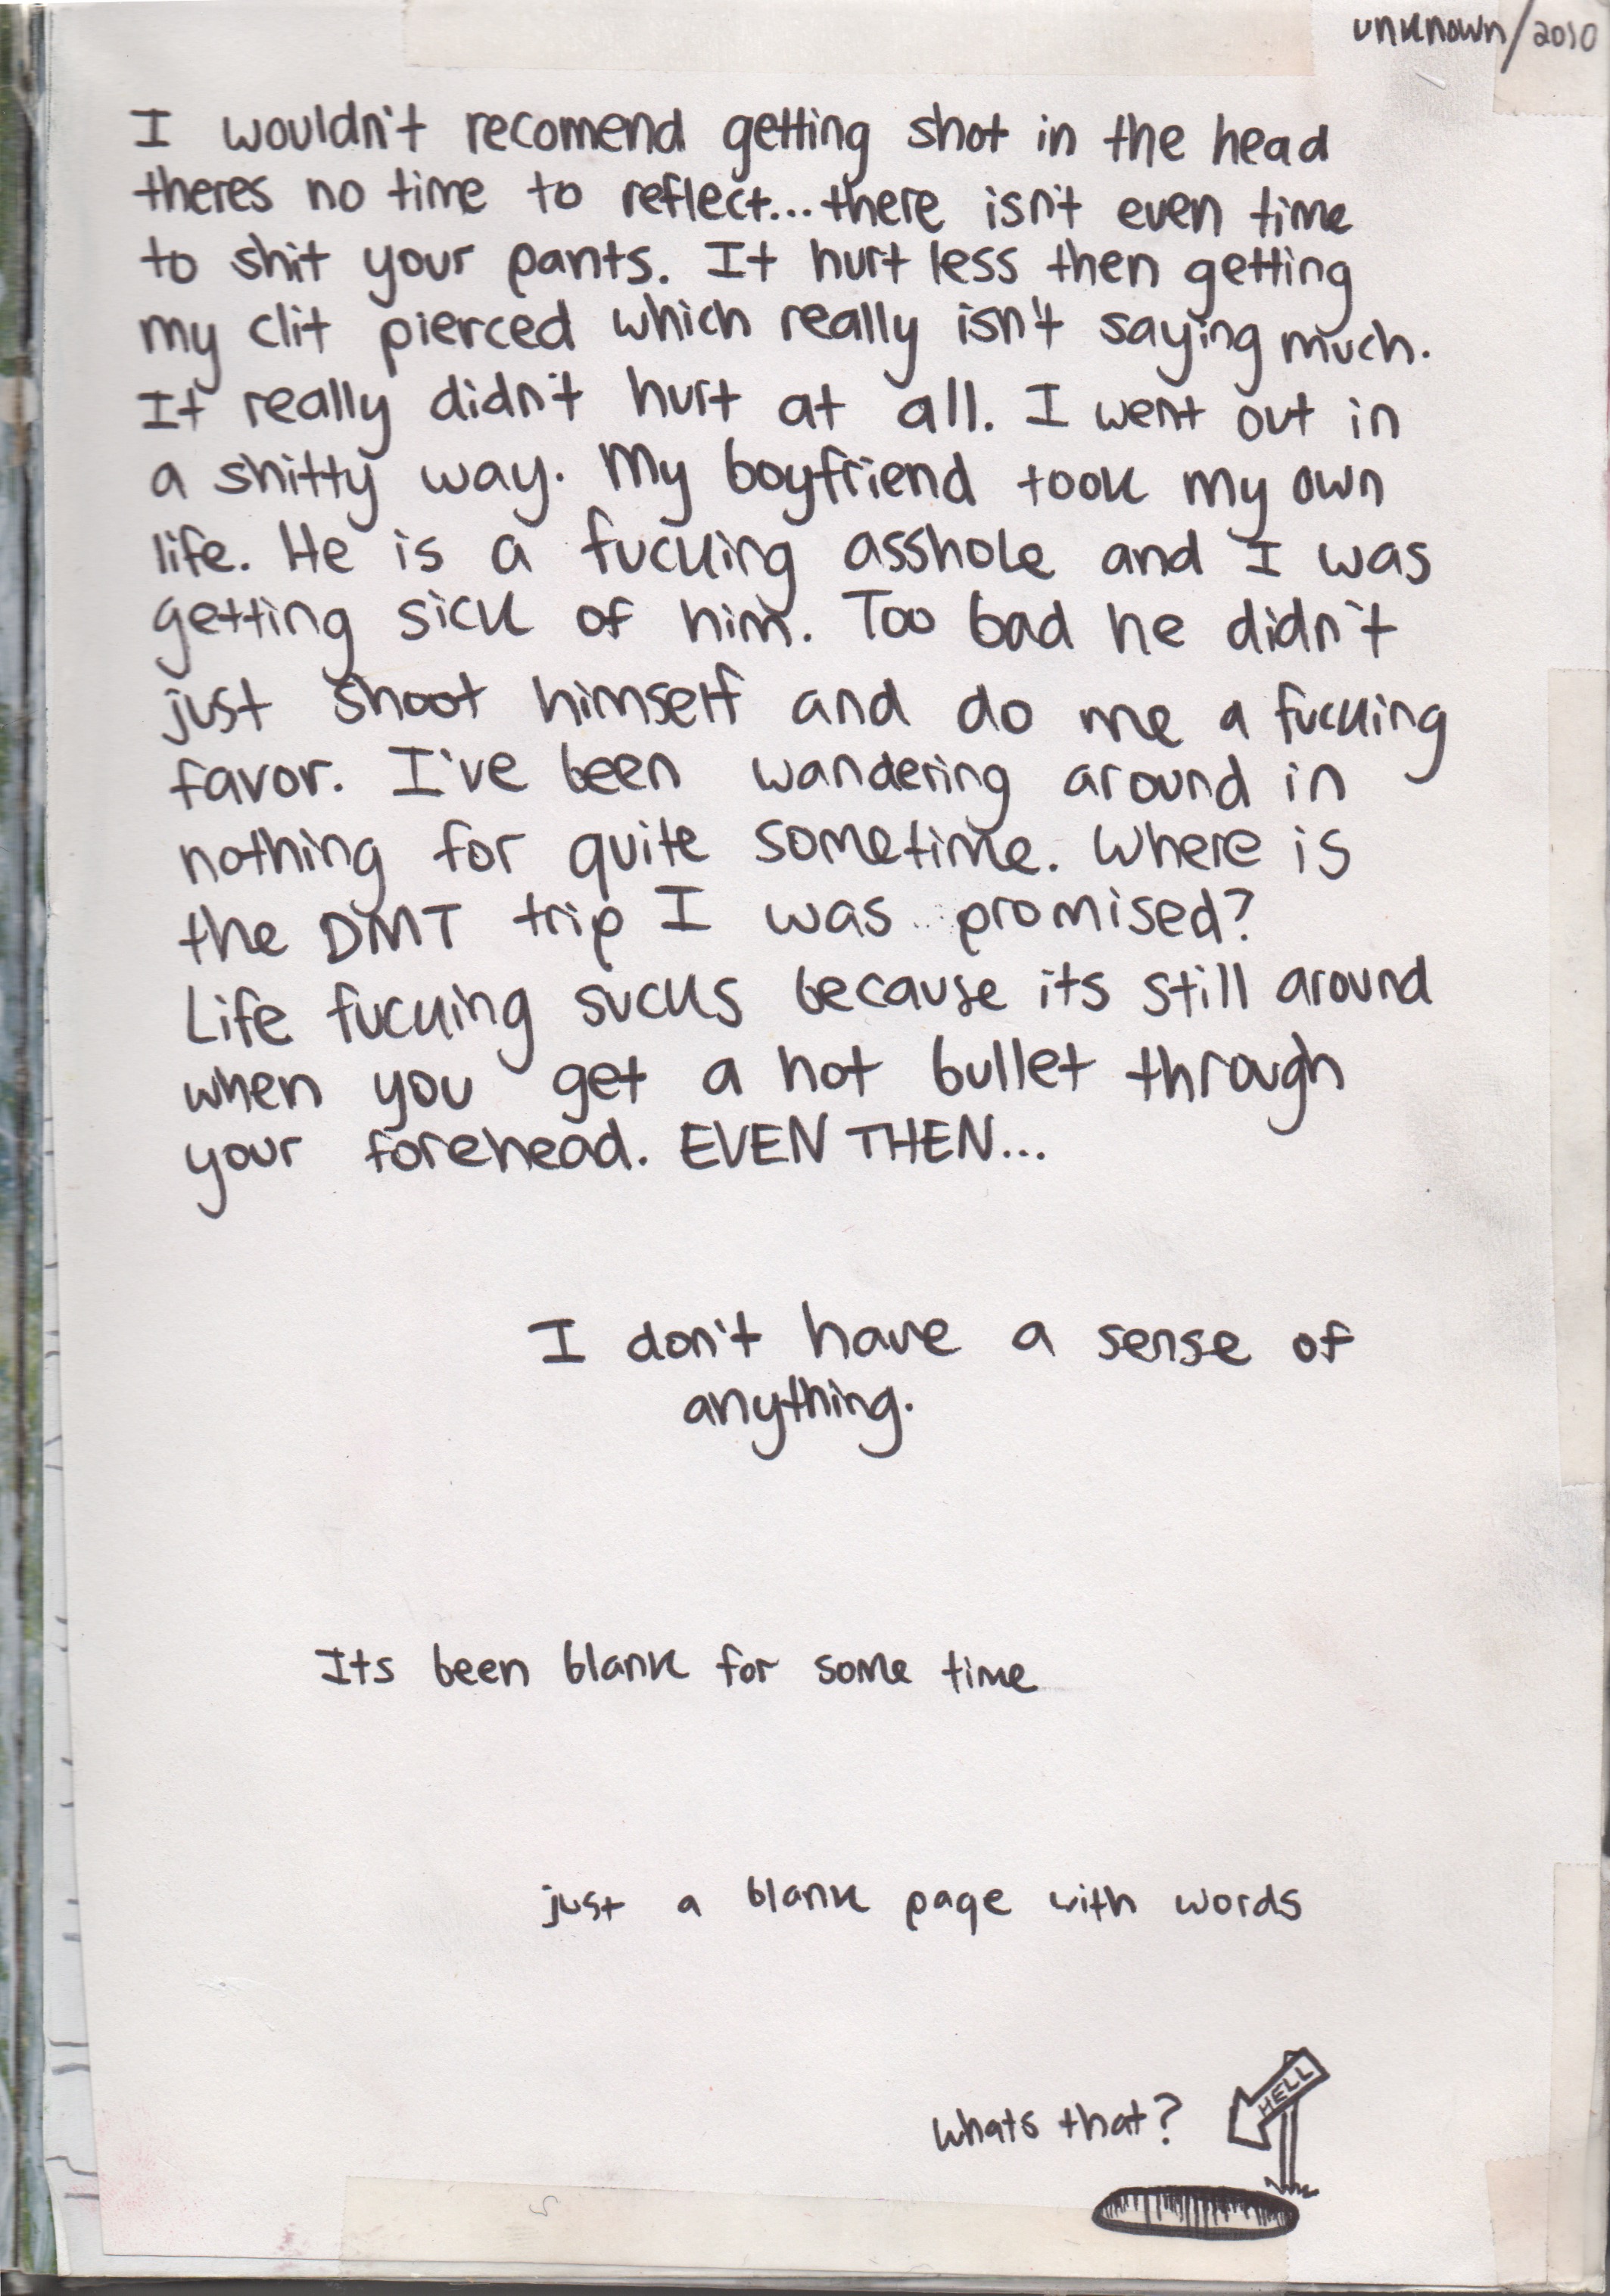 unknown/2010
I wouldn't recomend getting shot in the head
theres no time to reflect...there isn't even time
to shit your pants. It hurt less then getting
my clit pierced which really isn't saying much.
It really didn't hurt at all. I went out in
a shitty way. My boyfriend took my own
life. He is a fucking asshole and I was
getting sick of him. Too bad he didn't
just shoot himself and do me a fucking
favor. I've been wandering around in
nothing for quite sometime. Where is
the DMT trip I was promised?
Life fucking sucks because its still around
when you get a hot bullet through
your forehead. EVEN THEN...
I don't have a sense of
anything.
Its been blank for some time
just a blank page with words
whats that?
HELL